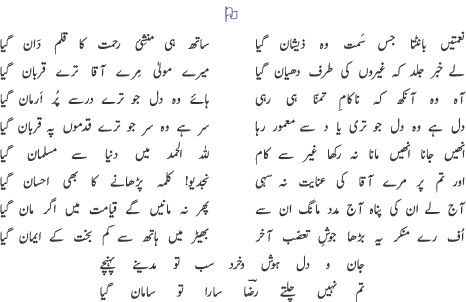 نعمتیں بانٹتا جس سمت وہ ذیشان گیا ساتھ ہی منشیِٔ رحمت کا قلم دان گیا
لے خبر جلد کہ غیروں کی طرف دھیان گیا میرے مولیٰ مِرے آقا ترے قربان گیا
آہ وہ آنکھ کہ ناکامِ تمنّا ہی رہی ہائے وہ دل جو ترے درسے پُر ارمان گیا
دل ہے وہ دل جو تری یا د سے معمور رہا سر ہے وہ سر جو ترے قدموں پہ قربان گیا
انھیں جانا انھیں مانا نہ رکھا غیر سے کام للہ الحمد میں دنیا سے مسلمان گیا
اور تم پر مرے آقا کی عنایت نہ سہی نجدیو! کلمہ پڑھانے کا بھی احسان گیا
آج لے ان کی پناہ آج مدد مانگ ان سے پھر نہ مانیں گے قیامت میں اگر مان گیا
اُف رے منکر یہ بڑھا جوشِ تعصّب آخر بھیڑ میں ہاتھ سے کم بخت کے ایمان گیا
جان و دل ہوش وخرد سب تو مدینے پہنچے
تم نہیں چلتے رضاؔ سارا تو سامان گیا